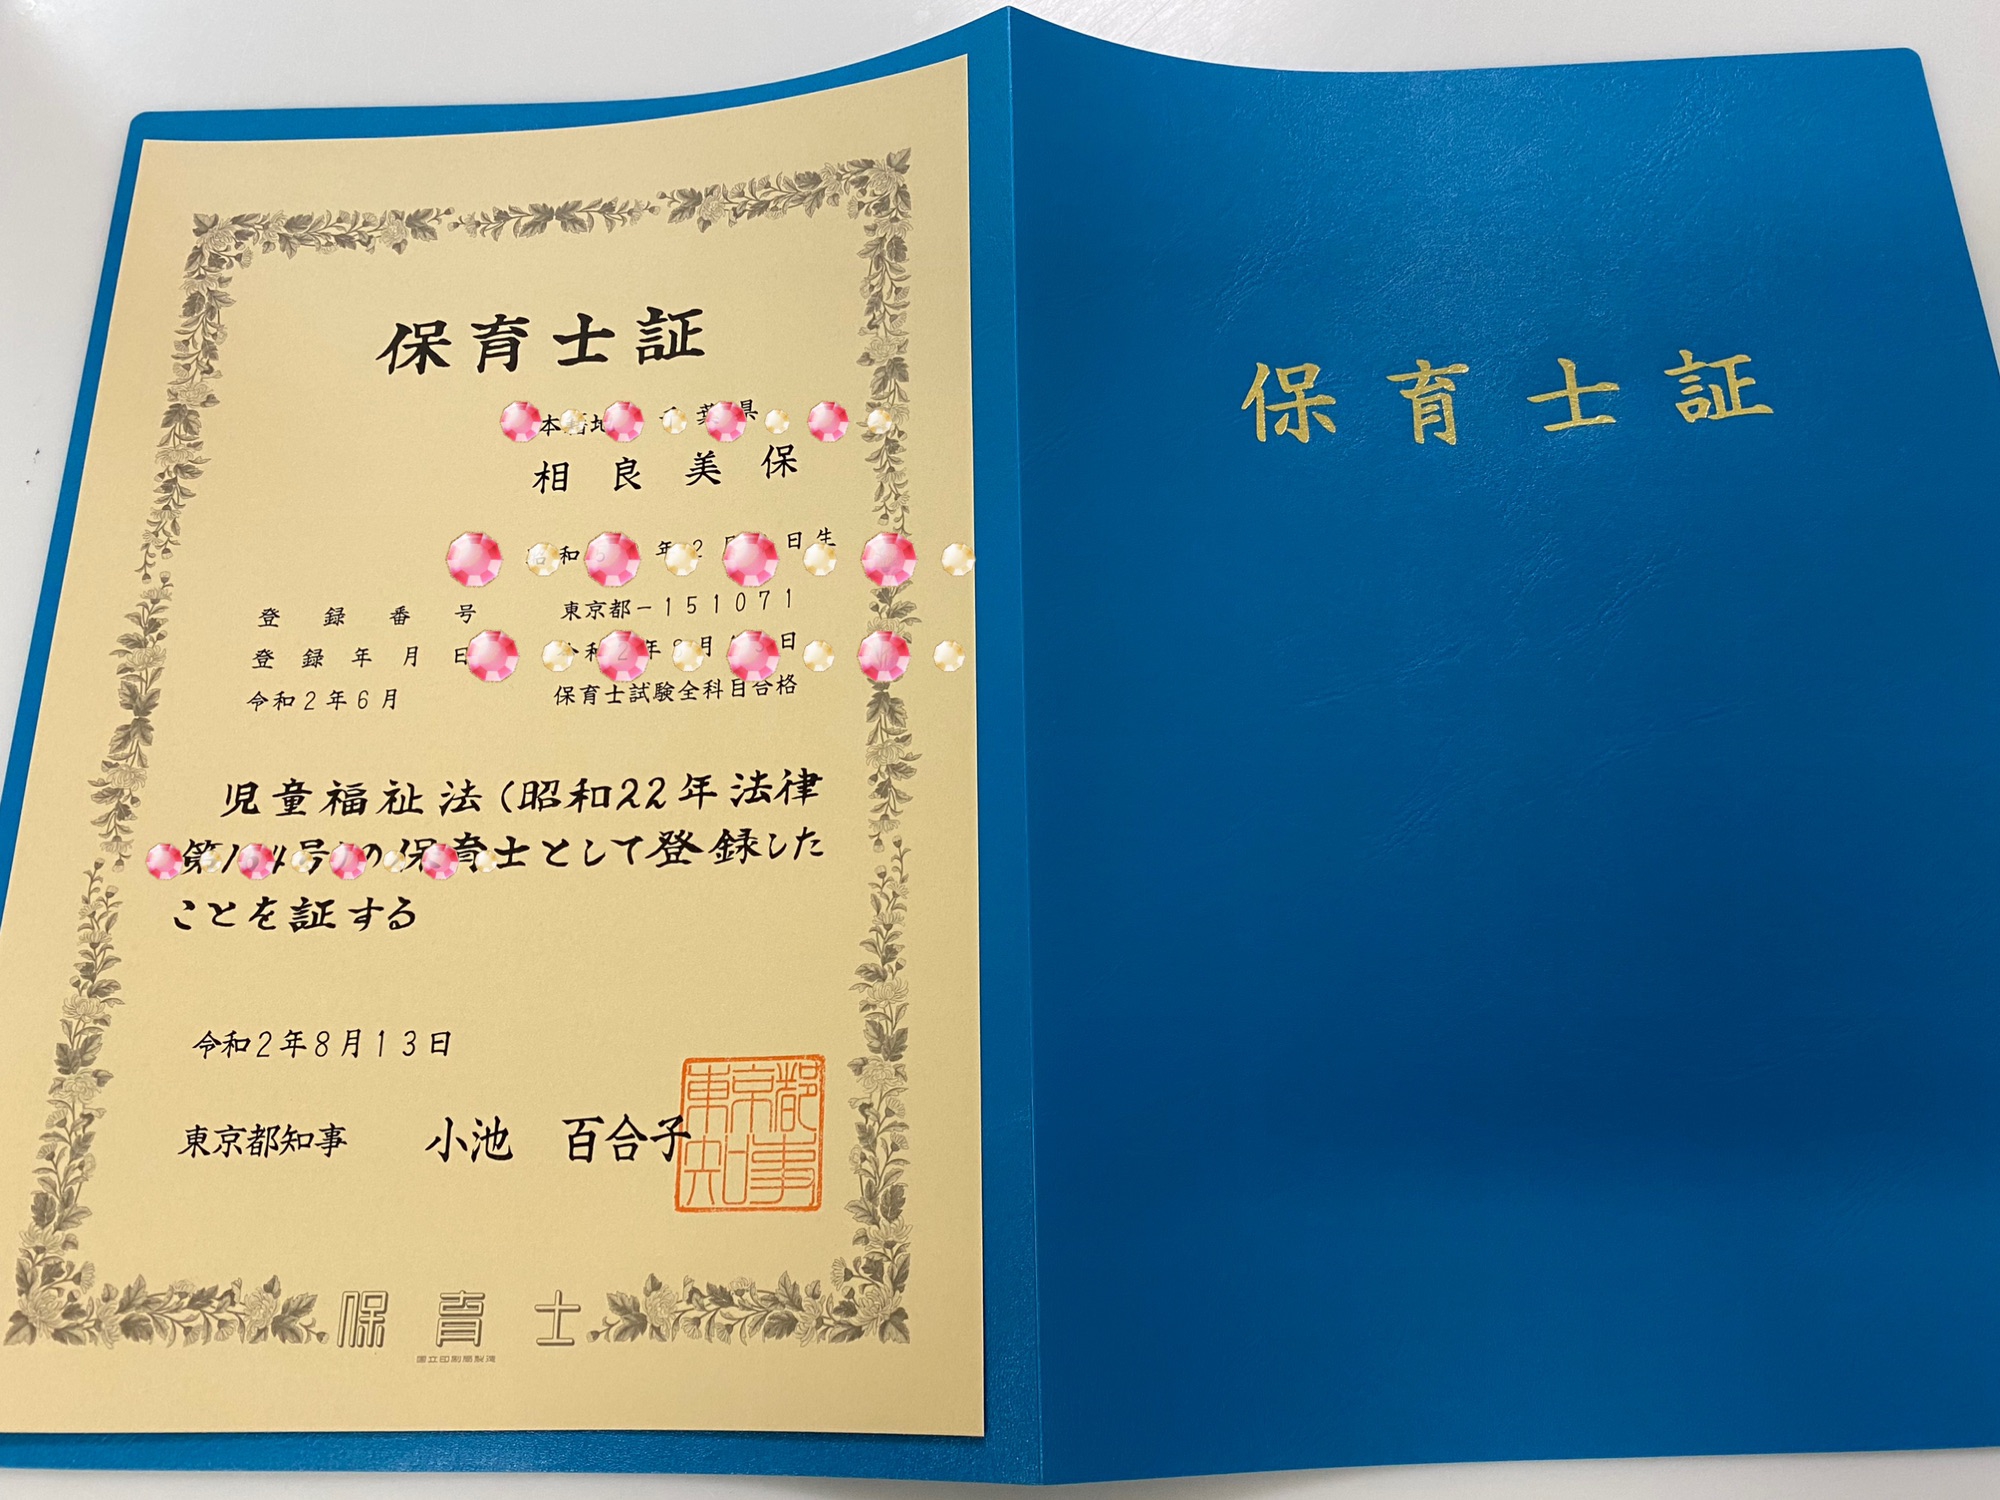 保育士証
本籍地 千葉県
相良美保
昭和 年2月 日生
登録番号 東京都－151071
登録年月日 令和2年8月 3日
令和2年6月 保育士試験全科目合格
児童福祉法(昭和22年法律
第164号)の保育士として登録した
ことを証する
令和2年8月13日
東京都知事 小池 百合子
東京都知事
保育士
国立印刷局製造
保育士証